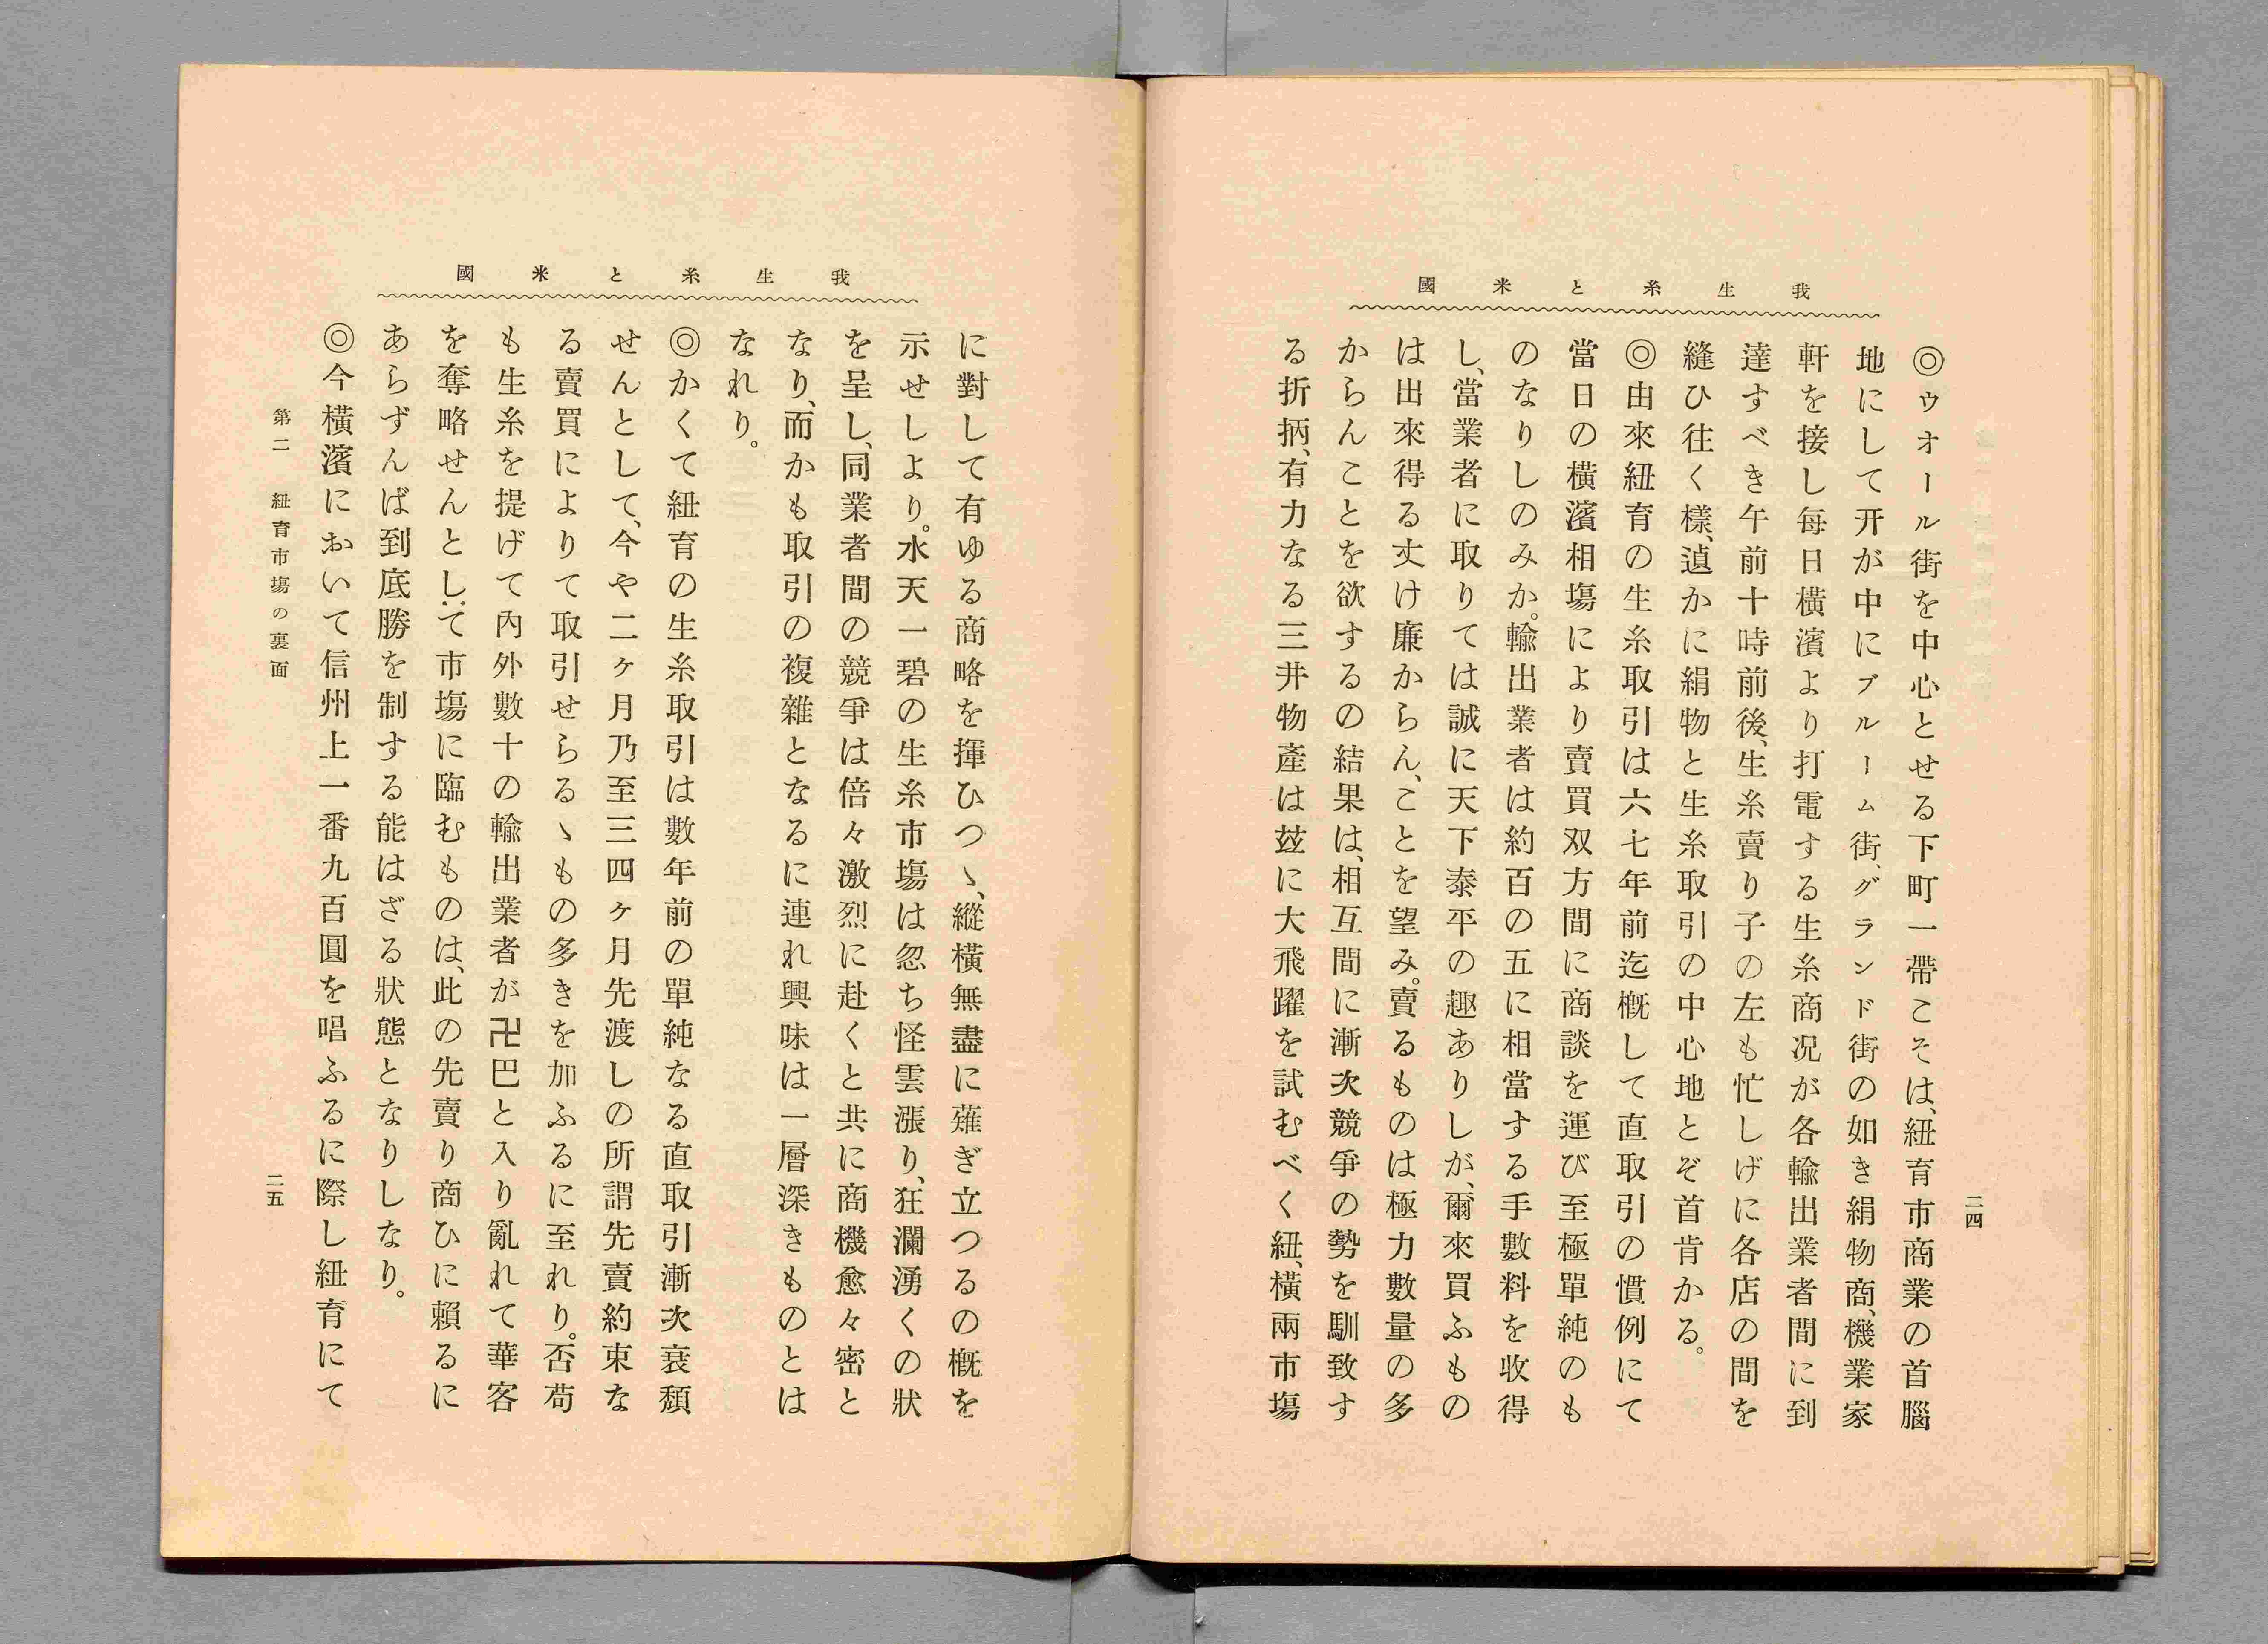 我生糸と米國
◎ウオール街を中心とせる下町一帶こそは、紐育市商業の首腦
地にして开が中にブルーム街、グランド街の如き絹物商、機業家
軒を接し每日橫濱より打電する生糸商况が各輸出業者間に到
達すべき午前十時前後、生糸賣り子の左も忙しげに各店の間を
縫ひ往く樣、遉かに絹物と生糸取引の中心地とぞ首肯かる。
◎由來紐育の生糸取引は六七年前迄槪して直取引の慣例にて
當日の橫濱相塲により賣買双方間に商談を運び至極單純のも
のなりしのみか。輸出業者は約百の五に相當する手數料を收得
し、當業者に取りては誠に天下泰平の趣ありしが、爾來買ふもの
は出來得る丈け廉からん、ことを望み。賣るものは極力數量の多
からんことを欲するの結果は、相互間に漸次競爭の勢を馴致す
る折柄、有力なる三井物產は玆に大飛躍を試むべく紐、橫兩市塲
二四
我生糸と米國
に對して有ゆる商略を揮ひつゝ、縱橫無盡に薙ぎ立つるの槪を
示せしより。水天一碧の生糸市塲は忽ち怪雲漲り、狂瀾湧くの狀
を呈し、同業者間の競爭は倍々激烈に赴くと共に商機愈々密と
なり、而かも取引の複雜となるに連れ興味は一層深きものとは
なれり。
◎かくて紐育の生糸取引は數年前の單純なる直取引漸次衰頽
せんとして、今や二ヶ月乃至三四ヶ月先渡しの所謂先賣約束な
る賣買によりて取引せらるゝもの多きを加ふるに至れり。否苟
も生糸を提げて內外數十の輸出業者が卍巴と入り亂れて華客
を奪略せんとして市塲に臨むものは、此の先賣り商ひに賴るに
あらずんば到底勝を制する能はざる狀態となりしなり。
◎今橫濱において信州上一番九百圓を唱ふるに際し紐育にて
第二　紐育市塲の裏面
二五